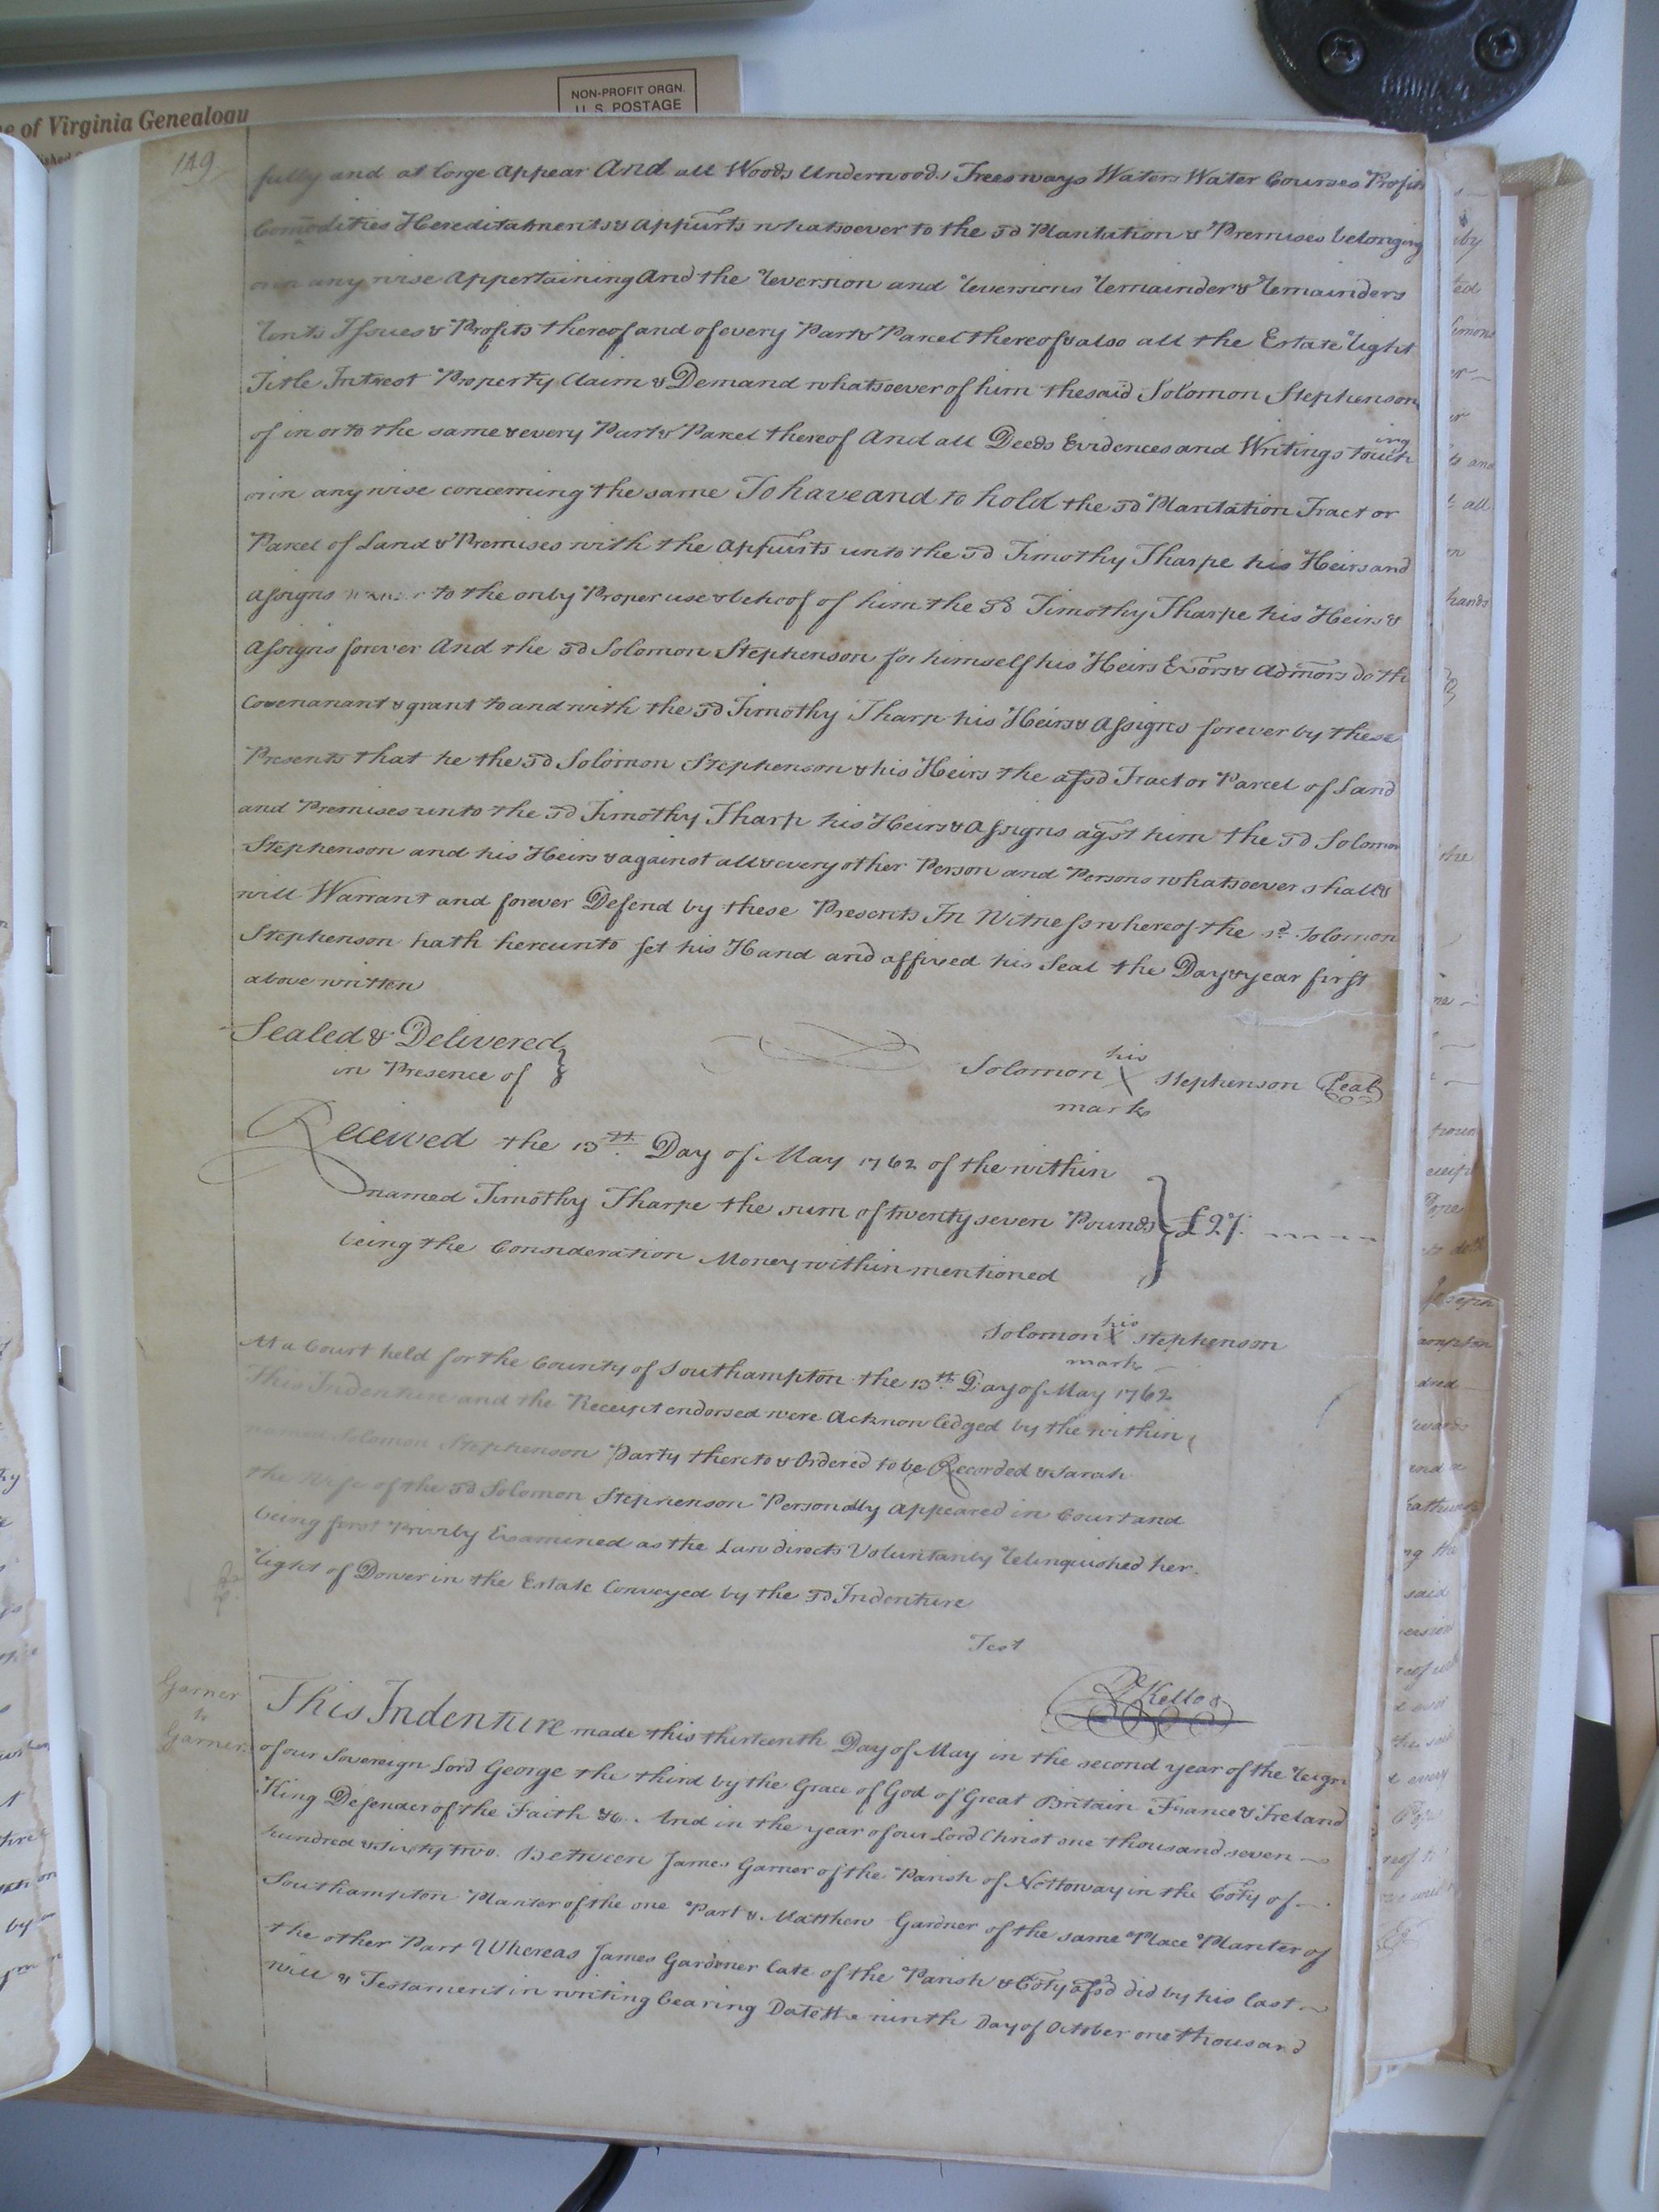 e of Virginia Genealogy
NON-PROFIT ORGN.
U. S. POSTAGE
149
fully and at large appear And all Woods Underwoods Trees ways Waters Water Courses Profits
Comodities Hereditaments & appurts whatsoever to the sd Plantation & Premises belonging
or in any wise Appertaining And the Reversion and Reversions Remainder & Remainders
Rents Issues & Profits thereof and of every Part & Parcel thereof & also all the Estate Right
Title Interest Property Claim & Demand whatsoever of him the said Solomon Stephenson
of in or to the same & every Part & Parcel thereof And all Deeds Evidences and Writings touching
or in any wise concerning the same To have and to hold the sd Plantation Tract or
Parcel of Land & Premises with the appurts unto the sd Timothy Tharpe his Heirs and
Assigns to the only Proper use & behoof of him the sd Timothy Tharpe his Heirs &
Assigns forever And the sd Solomon Stephenson for himself his Heirs Exors & Admors doth
Covenanant & grant to and with the sd Timothy Tharp his Heirs & Assigns forever by these
Presents that he the sd Solomon Stephenson & his Heirs the afsd Tract or Parcel of Land
and Premises unto the sd Timothy Tharp his Heirs & Assigns agst him the sd Solomon
Stephenson and his Heirs & against all & every other Person and Persons whatsoever shall &
will Warrant and forever Defend by these Presents In Witness whereof the sd. Solomon
Stephenson hath hereunto set his Hand and affixed his Seal the Day & year first
above written
Sealed & Delivered
in Presence of
Solomon his X mark Stephenson Seal
Received the 13th. Day of May 1762 of the within
named Timothy Tharpe the sum of twenty seven Pounds £27.
being the Consideration Money within mentioned
Solomon his X mark Stephenson
At a Court held for the County of Southampton the 13th. Day of May 1762
This Indenture and the Receipt endorsed were Acknowledged by the within
named Solomon Stephenson Party thereto & Ordered to be Recorded & Sarah
the Wife of the sd Solomon Stephenson Personally appeared in Court and
being first Privily Examined as the Law directs Voluntarily Relinquished her
Right of Dower in the Estate Conveyed by the sd Indenture
Test
R Kello
Garner
to
Garner
This Indenture made this thirteenth Day of May in the second year of the Reign
of our Sovereign Lord George the third by the Grace of God of Great Britain France & Ireland
King Defender of the Faith &c. And in the year of our Lord Christ one thousand seven
hundred & sixty two. Between James Garner of the Parish of Nottoway in the Coty of
Southampton Planter of the one Part & Matthew Gardner of the same Place Planter of
the other Part Whereas James Gardener late of the Parish & Coty afsd did by his last
will & Testament in writing bearing Date the ninth Day of October one thousand